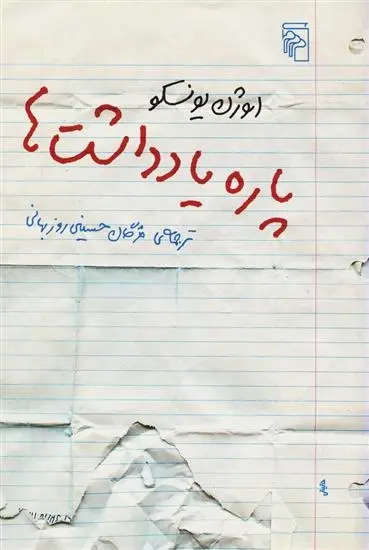 اوژن یونسکو
پاره یادداشت‌ها
ترجمه‌ی مژگان حسینی روزبهانی